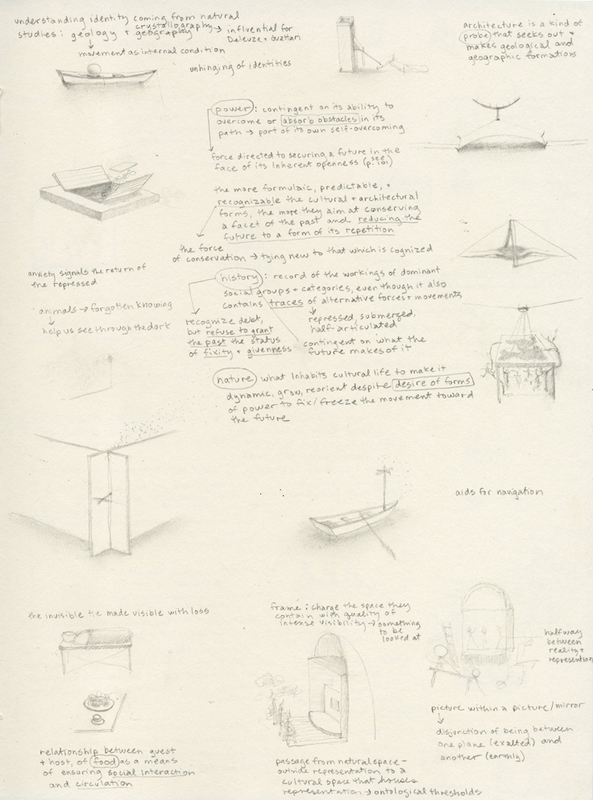 understanding identity coming from natural
studies: geology + crystallography + geography → influential for
Deleuze + Guattari
movement as internal condition
unhinging of identities
architecture is a kind of
(probe) that seeks out +
makes geological and
geographic formations
power: contingent on its ability to
overcome or absorb obstacles in its
path → part of its own self-overcoming
force directed to securing a future in the
face of its inherent openness (see p. 101)
the more formulaic, predictable, +
recognizable the cultural + architectural
forms, the more they aim at conserving
a facet of the past and reducing the
future to a form of its repetition
the force
of conservation → tying new to that which is cognized
anxiety signals the return of
the repressed
animals → forgotten knowing
help us see through the dark
history: record of the workings of dominant
social groups + categories, even though it also
contains traces of alternative forces + movements
repressed, submersed,
half-articulated
recognize debt,
but refuse to grant
the past the status
of fixity + givenness
contingent on what the
future makes of it
nature what inhabits cultural life to make it
dynamic, grow, reorient despite desire of forms
of power to fix/freeze the movement toward
the future
aids for navigation
the invisible tie made visible with loss
frame: charge the space they
contain with quality of
intense visibility → something
to be
looked at
halfway
between
reality +
representation
picture within a picture/mirror
disjunction of being between
one plane (exalted) and
another (earthly)
relationship between guest
+ host, of food as a means
of ensuring social interaction
and circulation
passage from natural space -
outside representation to a
cultural space that houses
representation → ontological thresholds